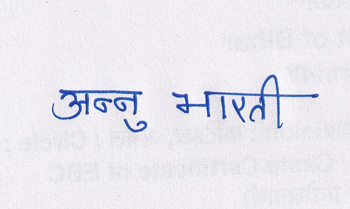 अन्नु भारती